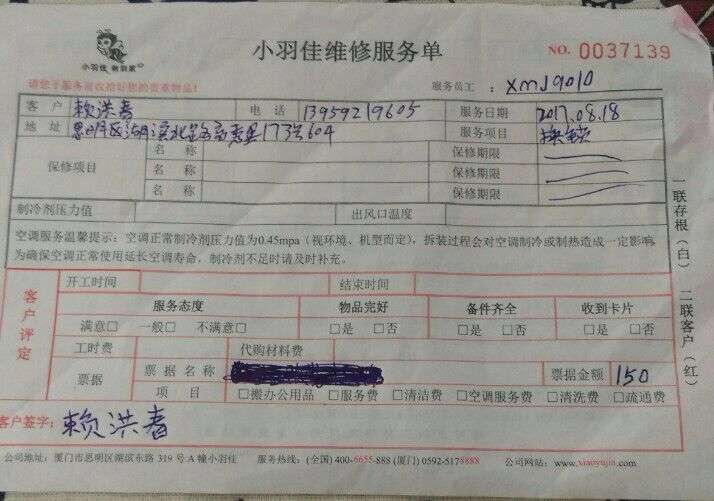 小羽佳 新羽家
小羽佳维修服务单
NO. 0037139
请您于服务前收拾好您的贵重物品!
服务员工: XMJ9010
客 户 赖洪春 电 话 13959219605 服务日期 2017.08.18
地 址 思明区湖滨北路 173号604 服务项目 换锁
保修项目
名 称 保修期限
名 称 保修期限
名 称 保修期限
制冷剂压力值 出风口温度
空调服务温馨提示:空调正常制冷剂压力值为0.45mpa(视环境、机型而定),拆装过程会对空调制冷或制热造成一定影响,
为确保空调正常使用延长空调寿命,制冷剂不足时请及时补充。
客户评定
开工时间 结束时间
服务态度 物品完好 备件齐全 收到卡片
满意□ 一般□ 不满意□ □是 □否 □是 □否 □是 □否
工时费 代购材料费
票据 票 据 名 称 票据金额 150
项 目 □搬办公用品 □服务费 □清洁费 □空调服务费 □清洗费 □疏通费
客户签字: 赖洪春
公司地址:厦门市思明区湖滨东路 319 号 A 幢小羽佳 服务热线:(全国) 400-6655-888 (厦门) 0592-5178888 公司网站:www.xiaoyujia.com
一联存根(白) 二联客户(红)